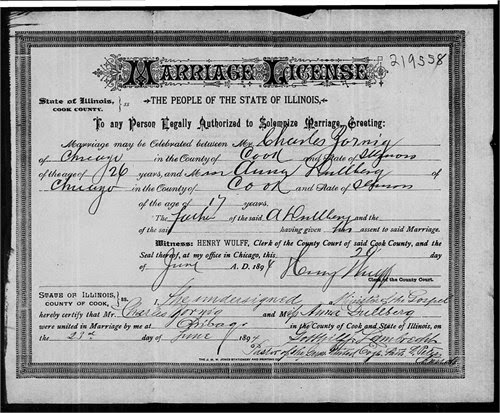 219558
MARRIAGE LICENSE
State of Illinois, } ss
COOK COUNTY.
THE PEOPLE OF THE STATE OF ILLINOIS,
To any Person Legally Authorized to Solemnize Marriage, Greeting:
Marriage may be Celebrated between Mr. Charles Zornig
of Chicago in the County of Cook and State of Illinois
of the age of 26 years, and Miss Anna Dullberg of
Chicago in the County of Cook and State of Illinois
of the age of 17 years.
The father of the said A Dullberg and the
of the said having given his assent to said Marriage.
Witness: HENRY WULFF, Clerk of the County Court of said Cook County, and the
Seal thereof, at my office in Chicago, this 20
of June A. D. 1894 Henry Wulff
Clerk of the County Court.
STATE OF ILLINOIS, } ss.
COUNTY OF COOK,
The undersigned Minister of the Gospel
hereby certify that Mr. Charles Zornig and Miss Anna Dullberg
were united in Marriage by me at Chicago in the County of Cook and State of Illinois, on
the 23rd day of June 1894 Lambrecht
Pastor of the